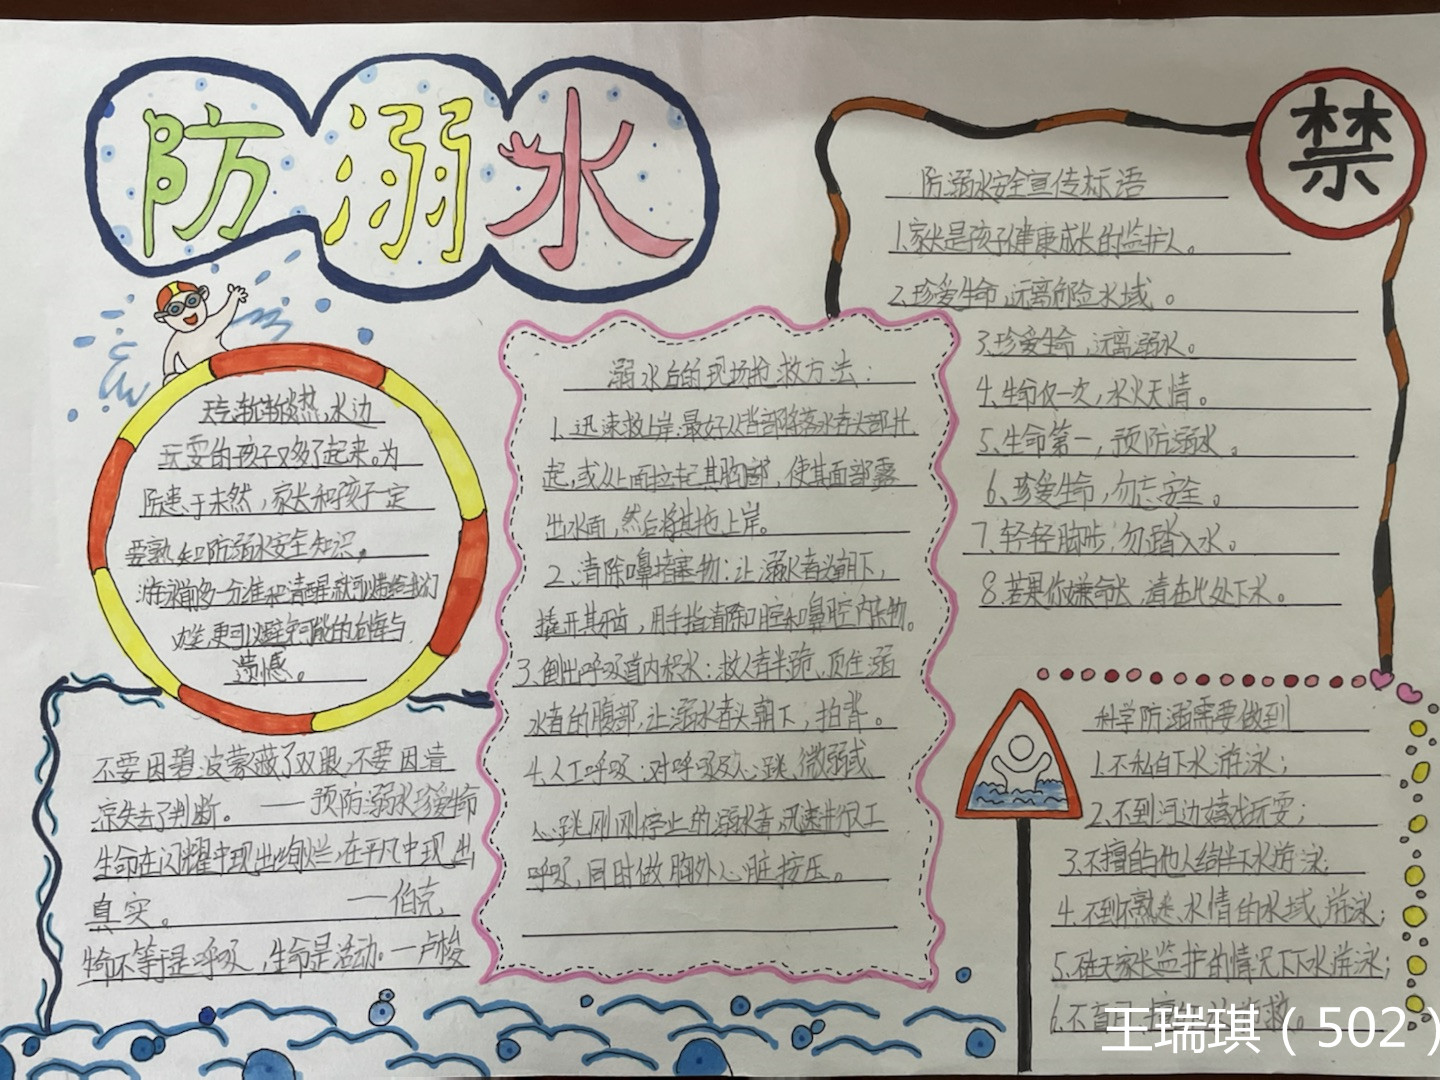 防溺水
禁
天气渐渐炎热,水边
玩耍的孩子又多了起来。为
防患于未然,家长和孩子一定
要熟知防溺水安全知识。
游泳前多一分准和清醒就可
更可以避免可能的后悔与
遗憾。
不要因碧波蒙蔽了双眼,不要因清
凉失去了判断。——预防溺水珍爱生命
生命在闪耀中现出绚烂,在平凡中现出
真实。——伯克
生命不等于是呼吸,生命是活动。—卢梭
溺水后的现场抢救方法:
1.迅速救上岸:最好从背部将落水者头部托
起,或从上面拉起其胸部,使其面部露
出水面,然后将其拖上岸。
2、清除口鼻堵塞物:让溺水者头朝下,
撬开其牙齿,用手指清除口腔和鼻腔内杂物。
3.倒出呼吸道内积水:救人者半跪,顶住溺
水者的腹部,让溺水者头朝下,拍背。
4.人工呼吸:对呼吸及心跳微弱或
心跳刚刚停止的溺水者,迅速进行人工
呼吸,同时做胸外心脏按压。
防溺水安全宣传标语
1.家长是孩子健康成长的监护人。
2.珍爱生命,远离危险水域。
3.珍爱生命,远离溺水。
4.生命仅一次,水火无情。
5.生命第一,预防溺水。
6.珍爱生命,勿忘安全。
7.轻轻脚步,勿踏入水。
8.若果你嫌命长,请在此处下水。
科学防溺需要做到
1.不私自下水游泳;
2.不到河边嬉戏玩耍;
3.不擅自与他人结伴下水游泳;
4.不到不熟悉水情的水域游泳;
5.在无家长监护的情况下下水游泳;
6.不盲目 救。
王瑞琪(502)